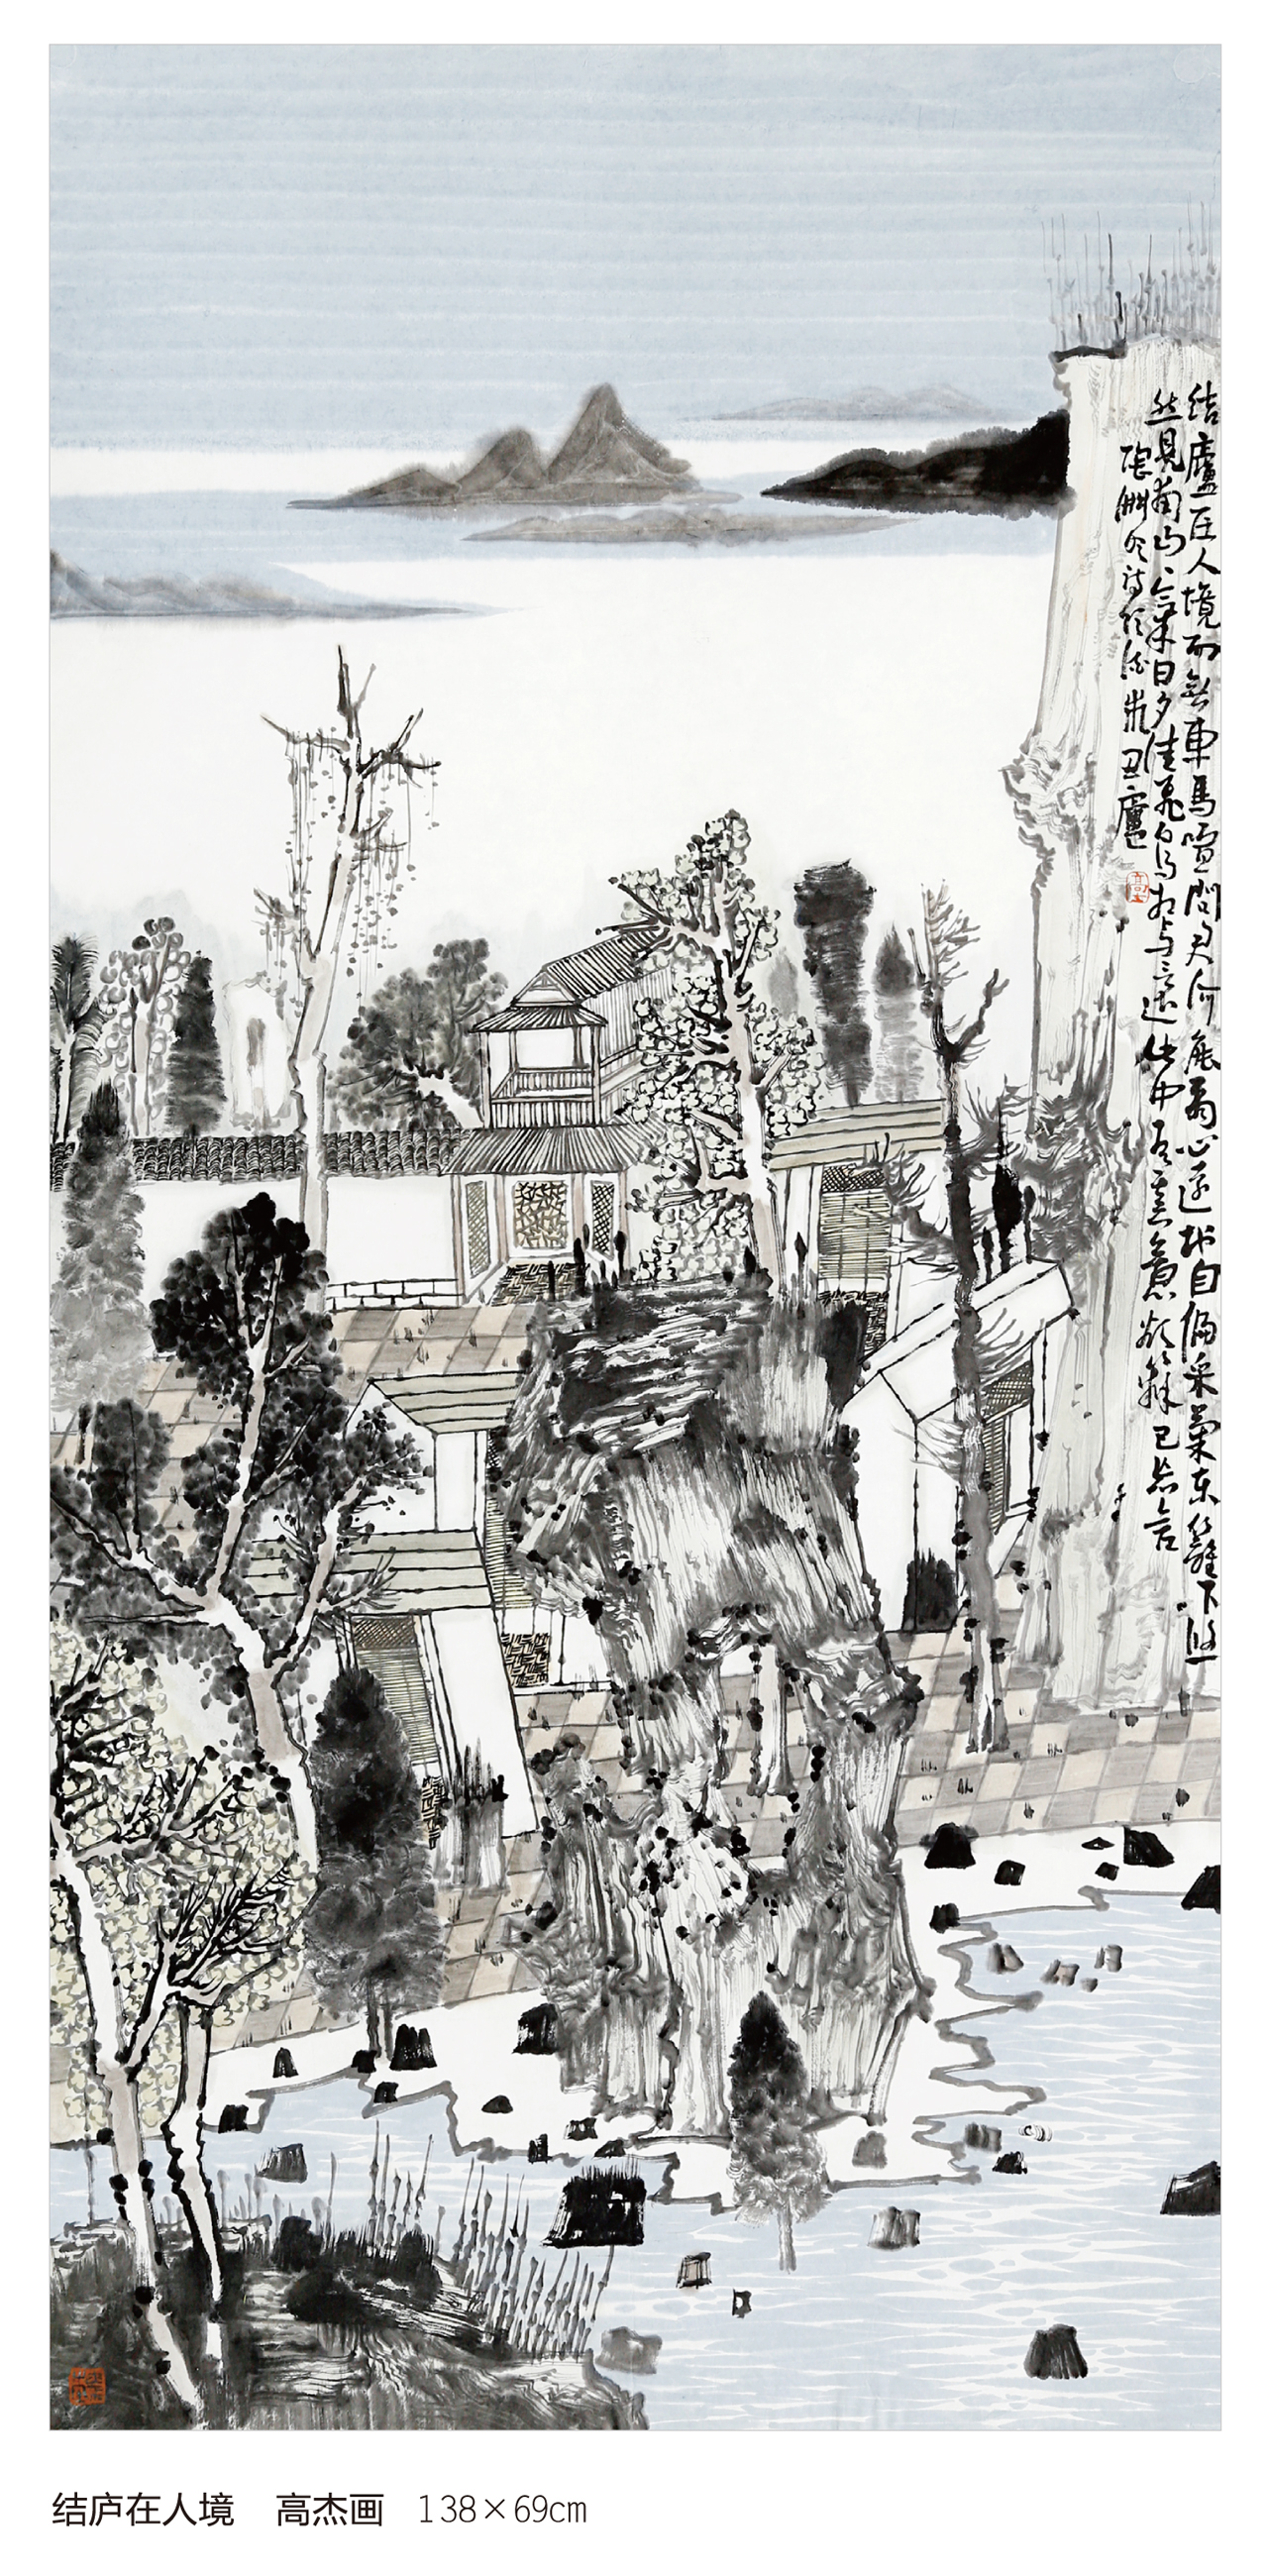 结廬在人境而無車馬喧問君何能爾心遠地自偏采菊东籬下悠
然見南山〻氣日夕佳飛鳥相与還此中有真意欲辭已忘言
陶渊诗饮酒丑廬
结庐在人境 高杰画 138×69cm